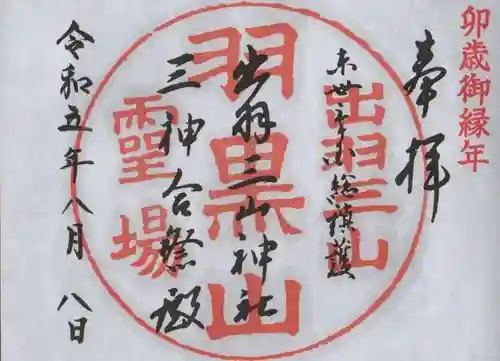 卯歳御縁年
奉拝
出羽三山
羽黒山
霊場
出羽三山神社
三神合祭殿
令和五年八月八日